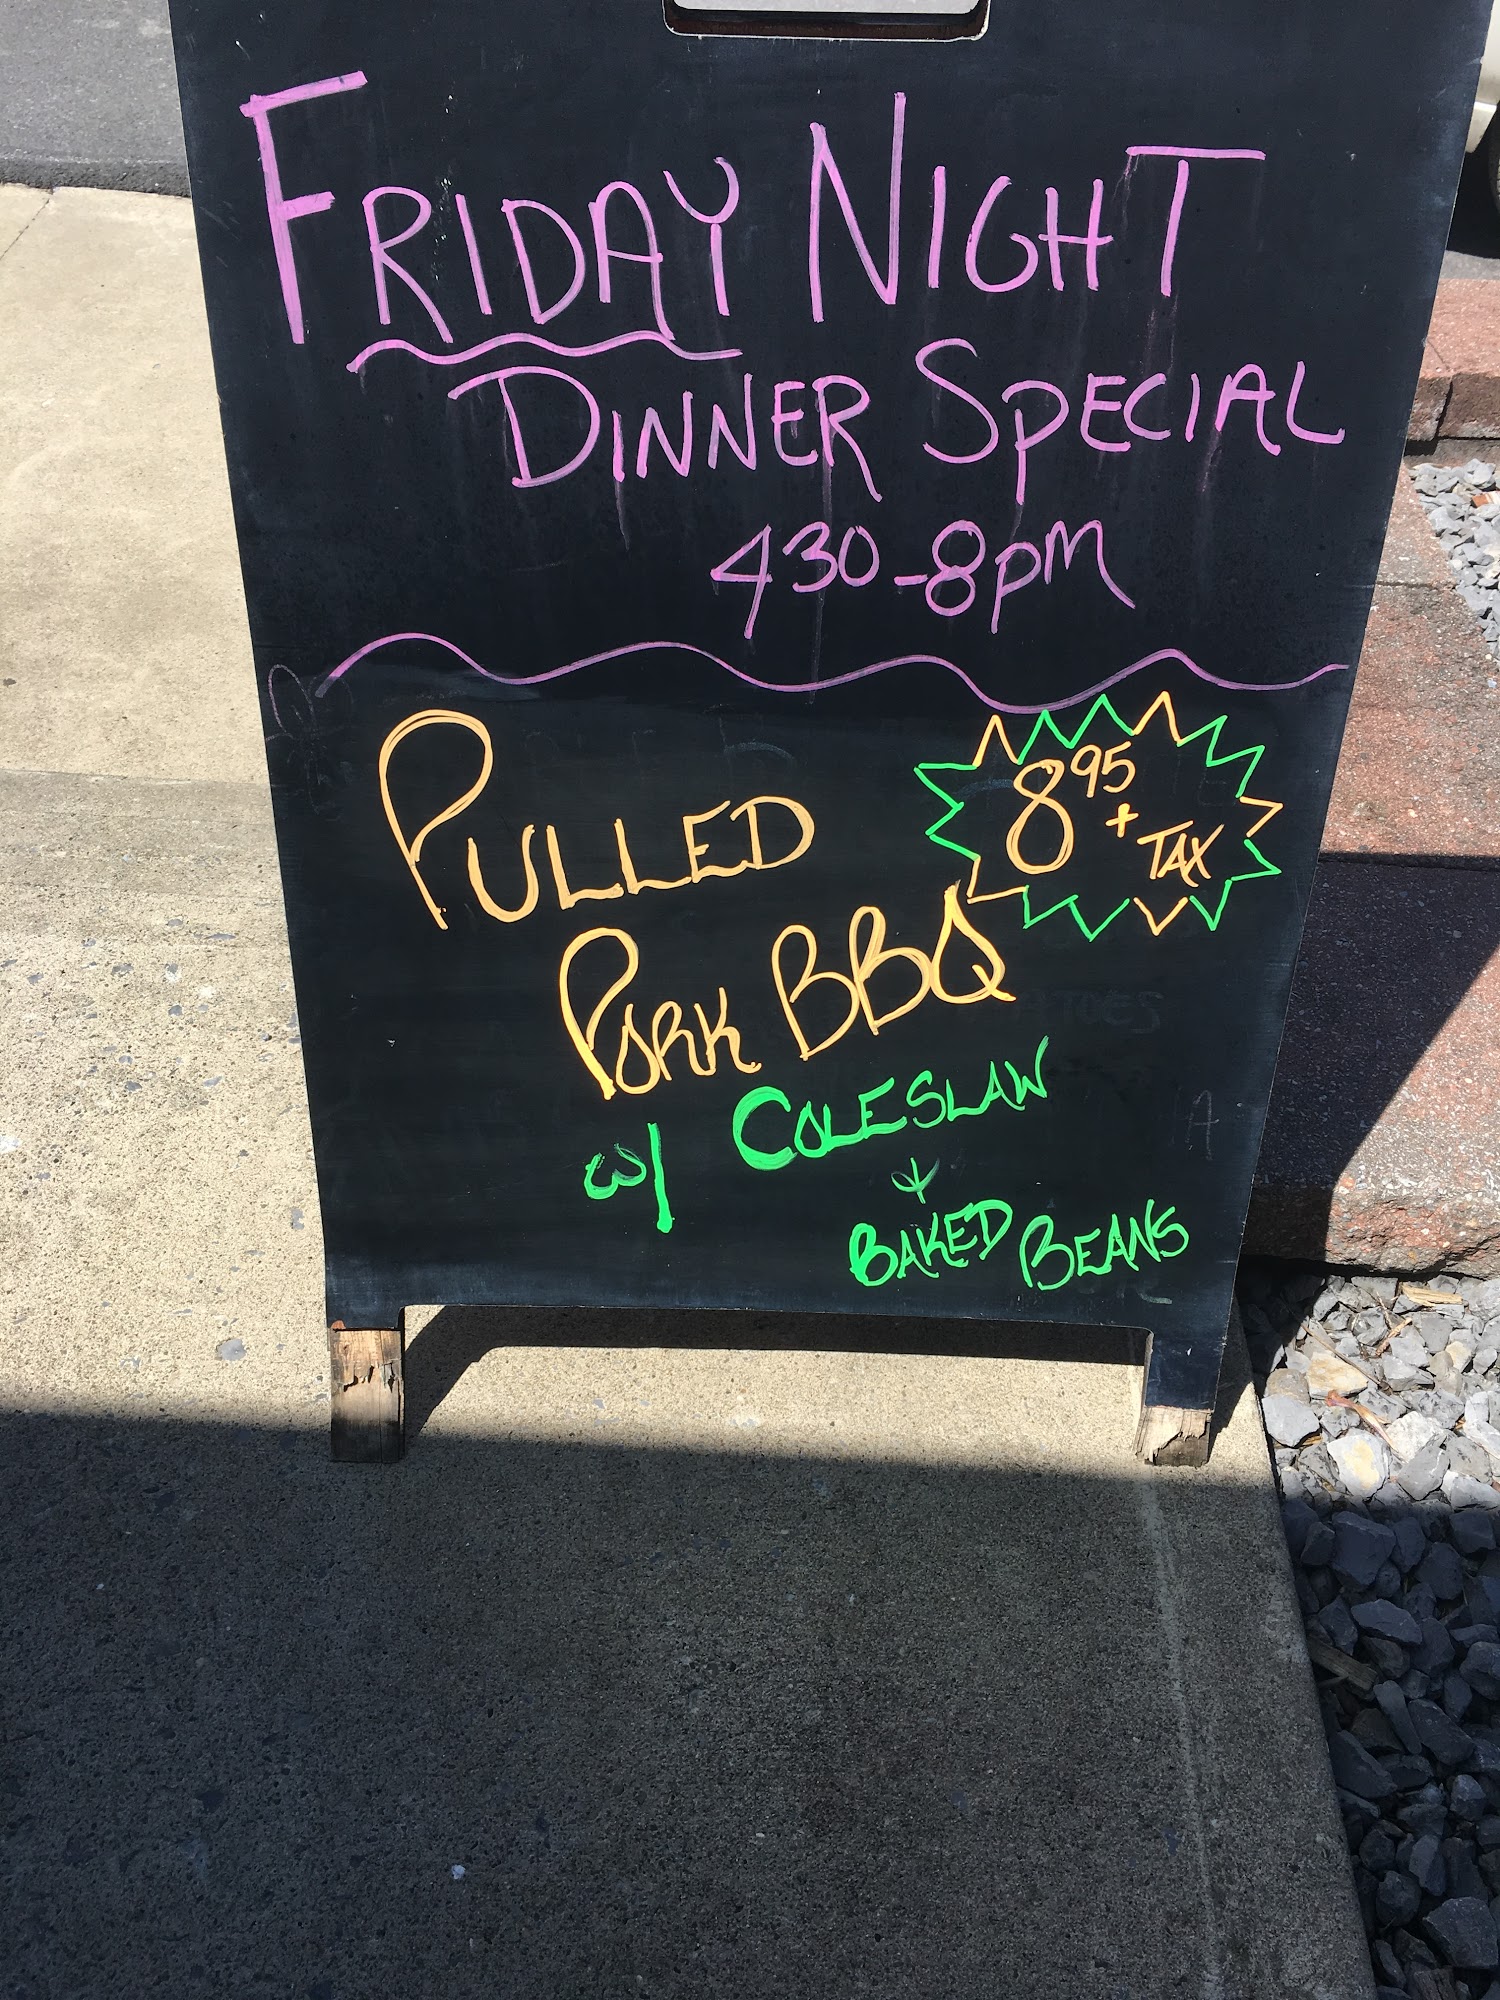 FRIDAY NIGHT
DINNER SPECIAL
430-8pm
8 95
+ TAX
PULLED
PORK BBQ
w/ COLESLAW
+
BAKED BEANS